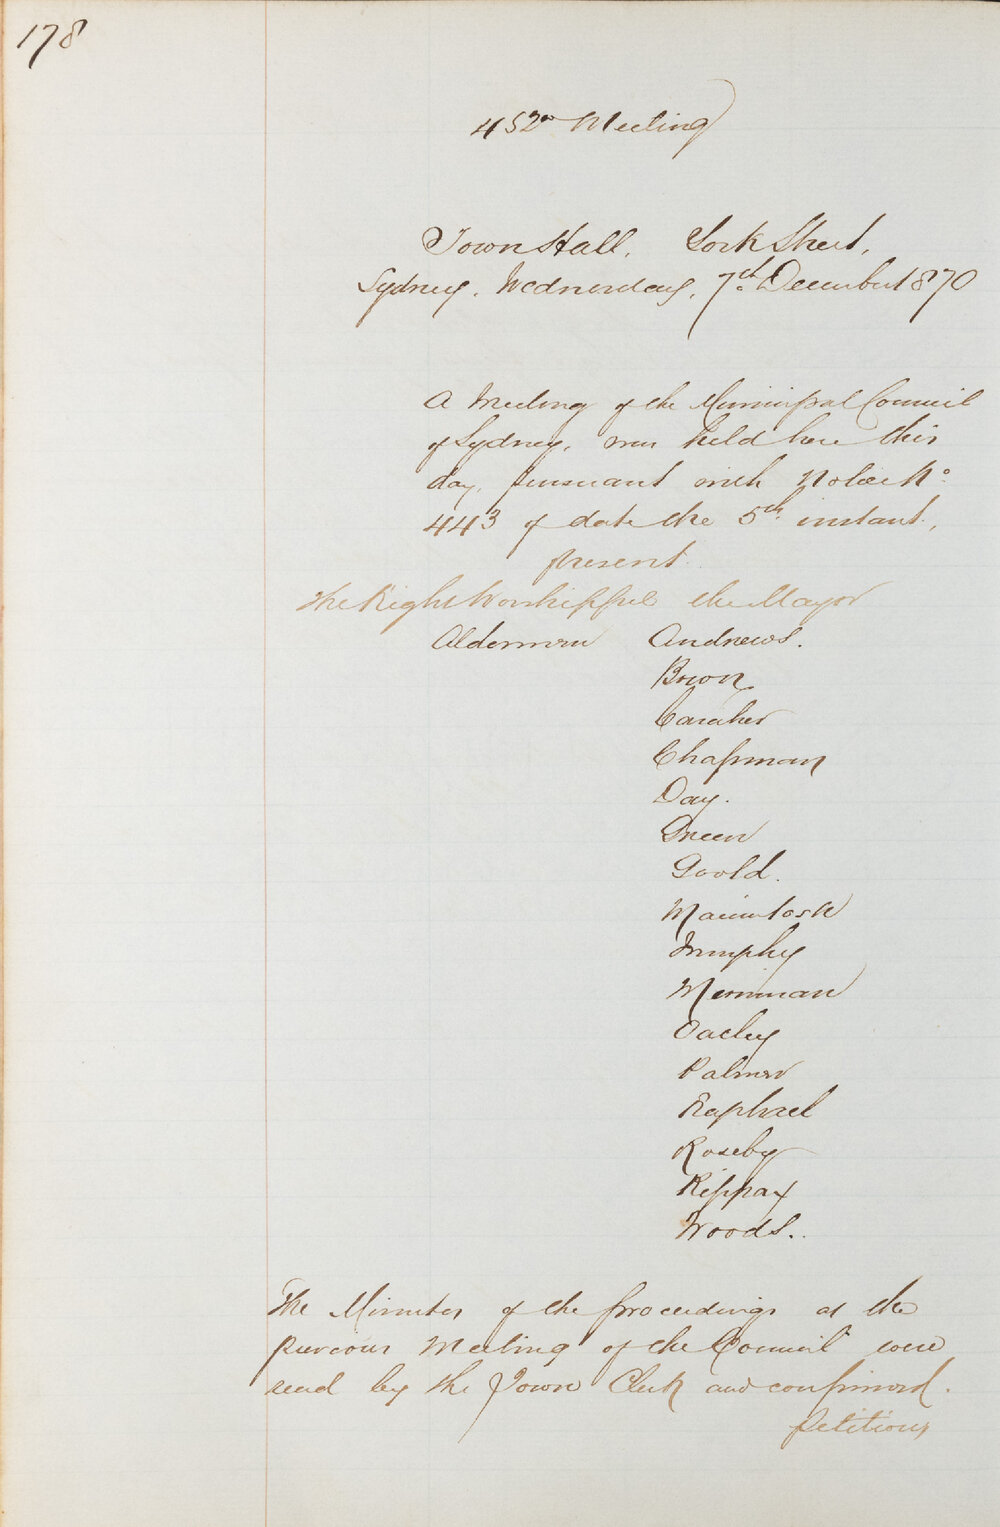 178
452nd Meeting
Town Hall, York Street,
Sydney, Wednesday, 7th December 1870
A Meeting of the Municipal Council
of Sydney, was held here this
day, pursuant with Notice No.
443 of date the 5th instant,
present
The Right Worshipful the Mayor
Aldermen Andrews.
Bown
Caraher
Chapman
Day.
Green
Goold.
Macintosh
Murphy
Merriman
Oatley
Palmer
Raphael
Roseby
Rippax
Woods.
The Minutes of the proceedings at the
previous Meeting of the Council were
read by the Town Clerk and confirmed.
Petitions